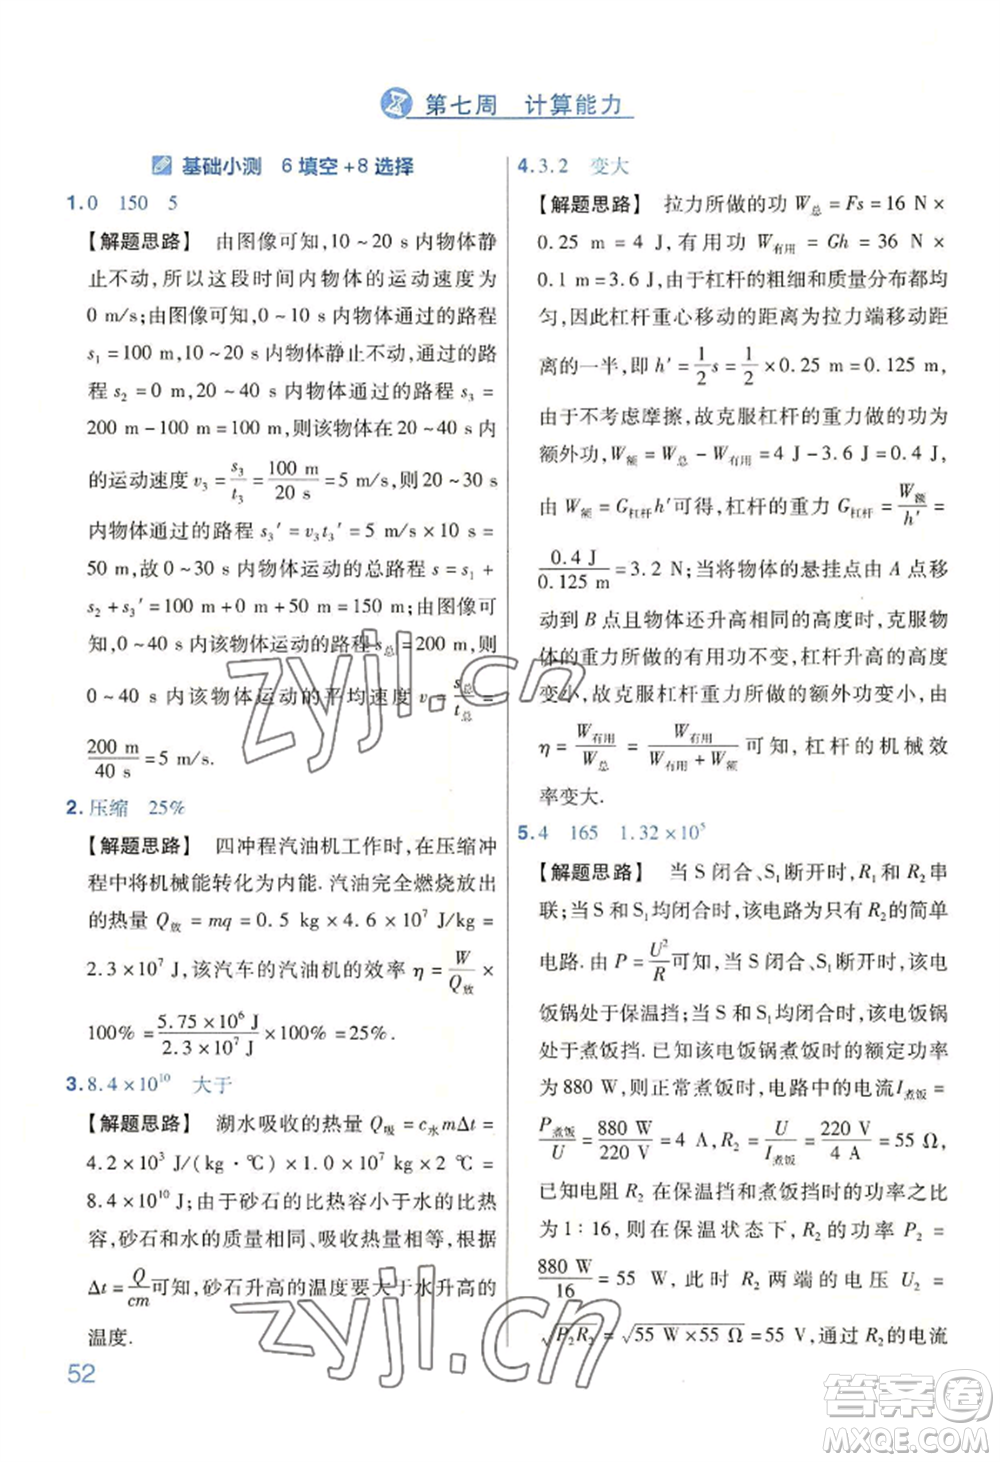 第七周 计算能力
基础小测 6 填空+8 选择
1.0 150 5
【解题思路】 由图像可知,10~20 s 内物体静
止不动,所以这段时间内物体的运动速度为
0 m/s;由图像可知,0~10 s 内物体通过的路程
s₁=100 m,10~20 s 内物体静止不动,通过的路
程 s₂=0 m,20~40 s 内物体通过的路程 s₃=
200 m-100 m=100 m,则该物体在 20~40 s 内
的运动速度 v₃=s₃/t₃=100 m/20 s=5 m/s,则 20~30 s
内物体通过的路程 s₃′=v₃t₃′=5 m/s×10 s=
50 m,故 0~30 s 内物体运动的总路程 s=s₁+
s₂+s₃′=100 m+0 m+50 m=150 m;由图像可
知,0~40 s 内该物体运动的路程 s总=200 m,则
0~40 s 内该物体运动的平均速度 v=s总/t总=
200 m/40 s=5 m/s.
2.压缩 25%
【解题思路】 四冲程汽油机工作时,在压缩冲
程中将机械能转化为内能. 汽油完全燃烧放出
的热量 Q放=mq=0.5 kg×4.6×10⁷ J/kg=
2.3×10⁷ J,该汽车的汽油机的效率 η=W/Q放×
100%=5.75×10⁶ J/2.3×10⁷ J×100%=25%.
3.8.4×10¹⁰ 大于
【解题思路】 湖水吸收的热量 Q吸=c水mΔt=
4.2×10³ J/(kg·℃)×1.0×10⁷ kg×2 ℃=
8.4×10¹⁰ J;由于砂石的比热容小于水的比热
容,砂石和水的质量相同、吸收热量相同,根据
Δt=Q/cm可知,砂石升高的温度要大于水升高的
温度.
52
4.3.2 变大
【解题思路】 拉力所做的功 W总=Fs=16 N×
0.25 m=4 J,有用功 W有用=Gh=36 N×
0.1 m=3.6 J,由于杠杆的粗细和质量分布都均
匀,因此杠杆重心移动的距离为拉力端移动距
离的一半,即 h′=1/2s=1/2×0.25 m=0.125 m,
由于不考虑摩擦,故克服杠杆的重力做的功为
额外功,W额=W总-W有用=4 J-3.6 J=0.4 J,
由 W额=G杠杆h′可得,杠杆的重力 G杠杆=W额/h′=
0.4 J/0.125 m=3.2 N;当将物体的悬挂点由 A 点移
动到 B 点且物体还升高相同的高度时,克服物
体的重力所做的有用功不变,杠杆升高的高度
变小,故克服杠杆重力所做的额外功变小,由
η=W有用/W总=W有用/(W有用+W额)可知,杠杆的机械效
率变大.
5.4 165 1.32×10⁵
【解题思路】 当 S 闭合、S₁断开时,R₁和 R₂串
联;当 S 和 S₁均闭合时,该电路为只有 R₂的简单
电路. 由 P=U²/R可知,当 S 闭合、S₁断开时,该电
饭锅处于保温挡;当 S 和 S₁均闭合时,该电饭锅
处于煮饭挡. 已知该电饭锅煮饭时的额定功率
为 880 W,则正常煮饭时,电路中的电流I煮饭=
P煮饭/U=880 W/220 V=4 A,R₂=U/I煮饭=220 V/4 A=55 Ω,
已知电阻 R₂在保温挡和煮饭挡时的功率之比
为 1∶16,则在保温状态下,R₂的功率 P₂=
880 W/16=55 W,此时 R₂ 两端的电压 U₂=
√P₂R₂=√55 W×55 Ω=55 V,通过 R₂的电流
zyjl.cn
zyjl.cn
答案圈
MXQE.COM